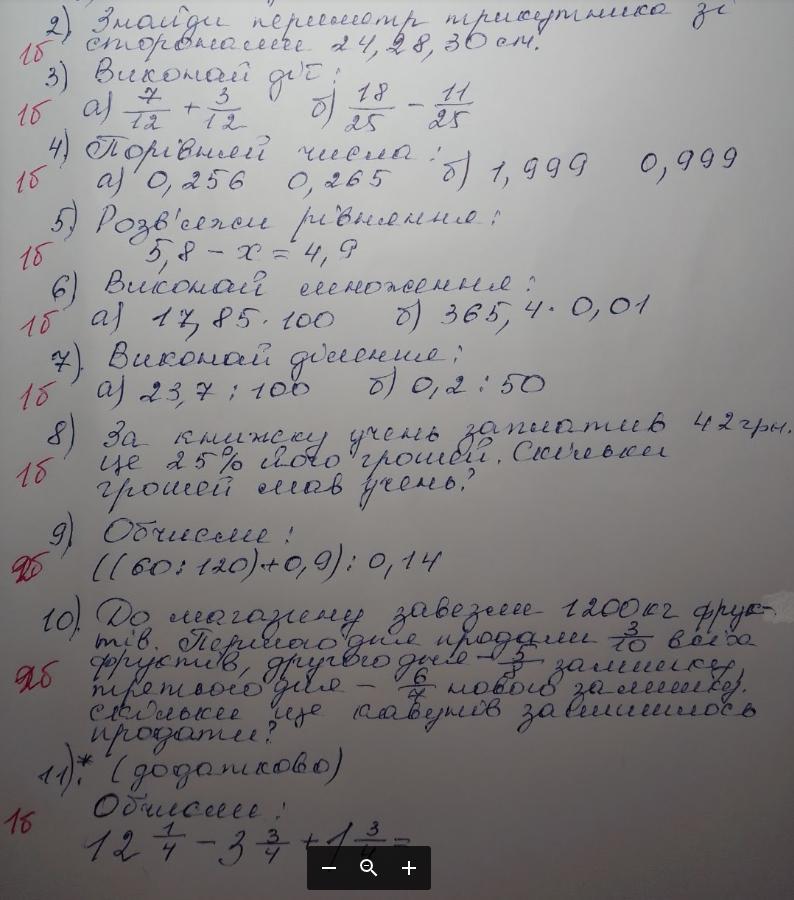 2) Знайди периметр трикутника зі
1б сторонами 24, 28, 30 см.
3) Виконай дії:
1б а) 7/12 + 3/12 б) 18/25 - 11/25
4) Порівняй числа:
1б а) 0,256 0,265 б) 1,999 0,999
5) Розв'яжи рівняння:
1б 5,8 - x = 4,9
6) Виконай множення:
1б а) 17,85 · 100 б) 365,4 · 0,01
7). Виконай ділення:
1б а) 23,7 : 100 б) 0,2 : 50
8) За книжку учень заплатив 42 грн.
1б Це 25% його грошей. Скільки
грошей мав учень?
9) Обчисли:
2б ((60 : 120) + 0,9) : 0,14
10). До магазину завезли 1200 кг фрук-
тів. Першого дня продали 3/10 всіх
фруктів, другого дня - 5/ залишку,
2б третього дня - 6/7 нового залишку.
Скільки ще кавунів залишилось
продати?
11).* (додатково)
1б Обчисли:
12 1/4 - 3 3/4 + 1 3/4 =